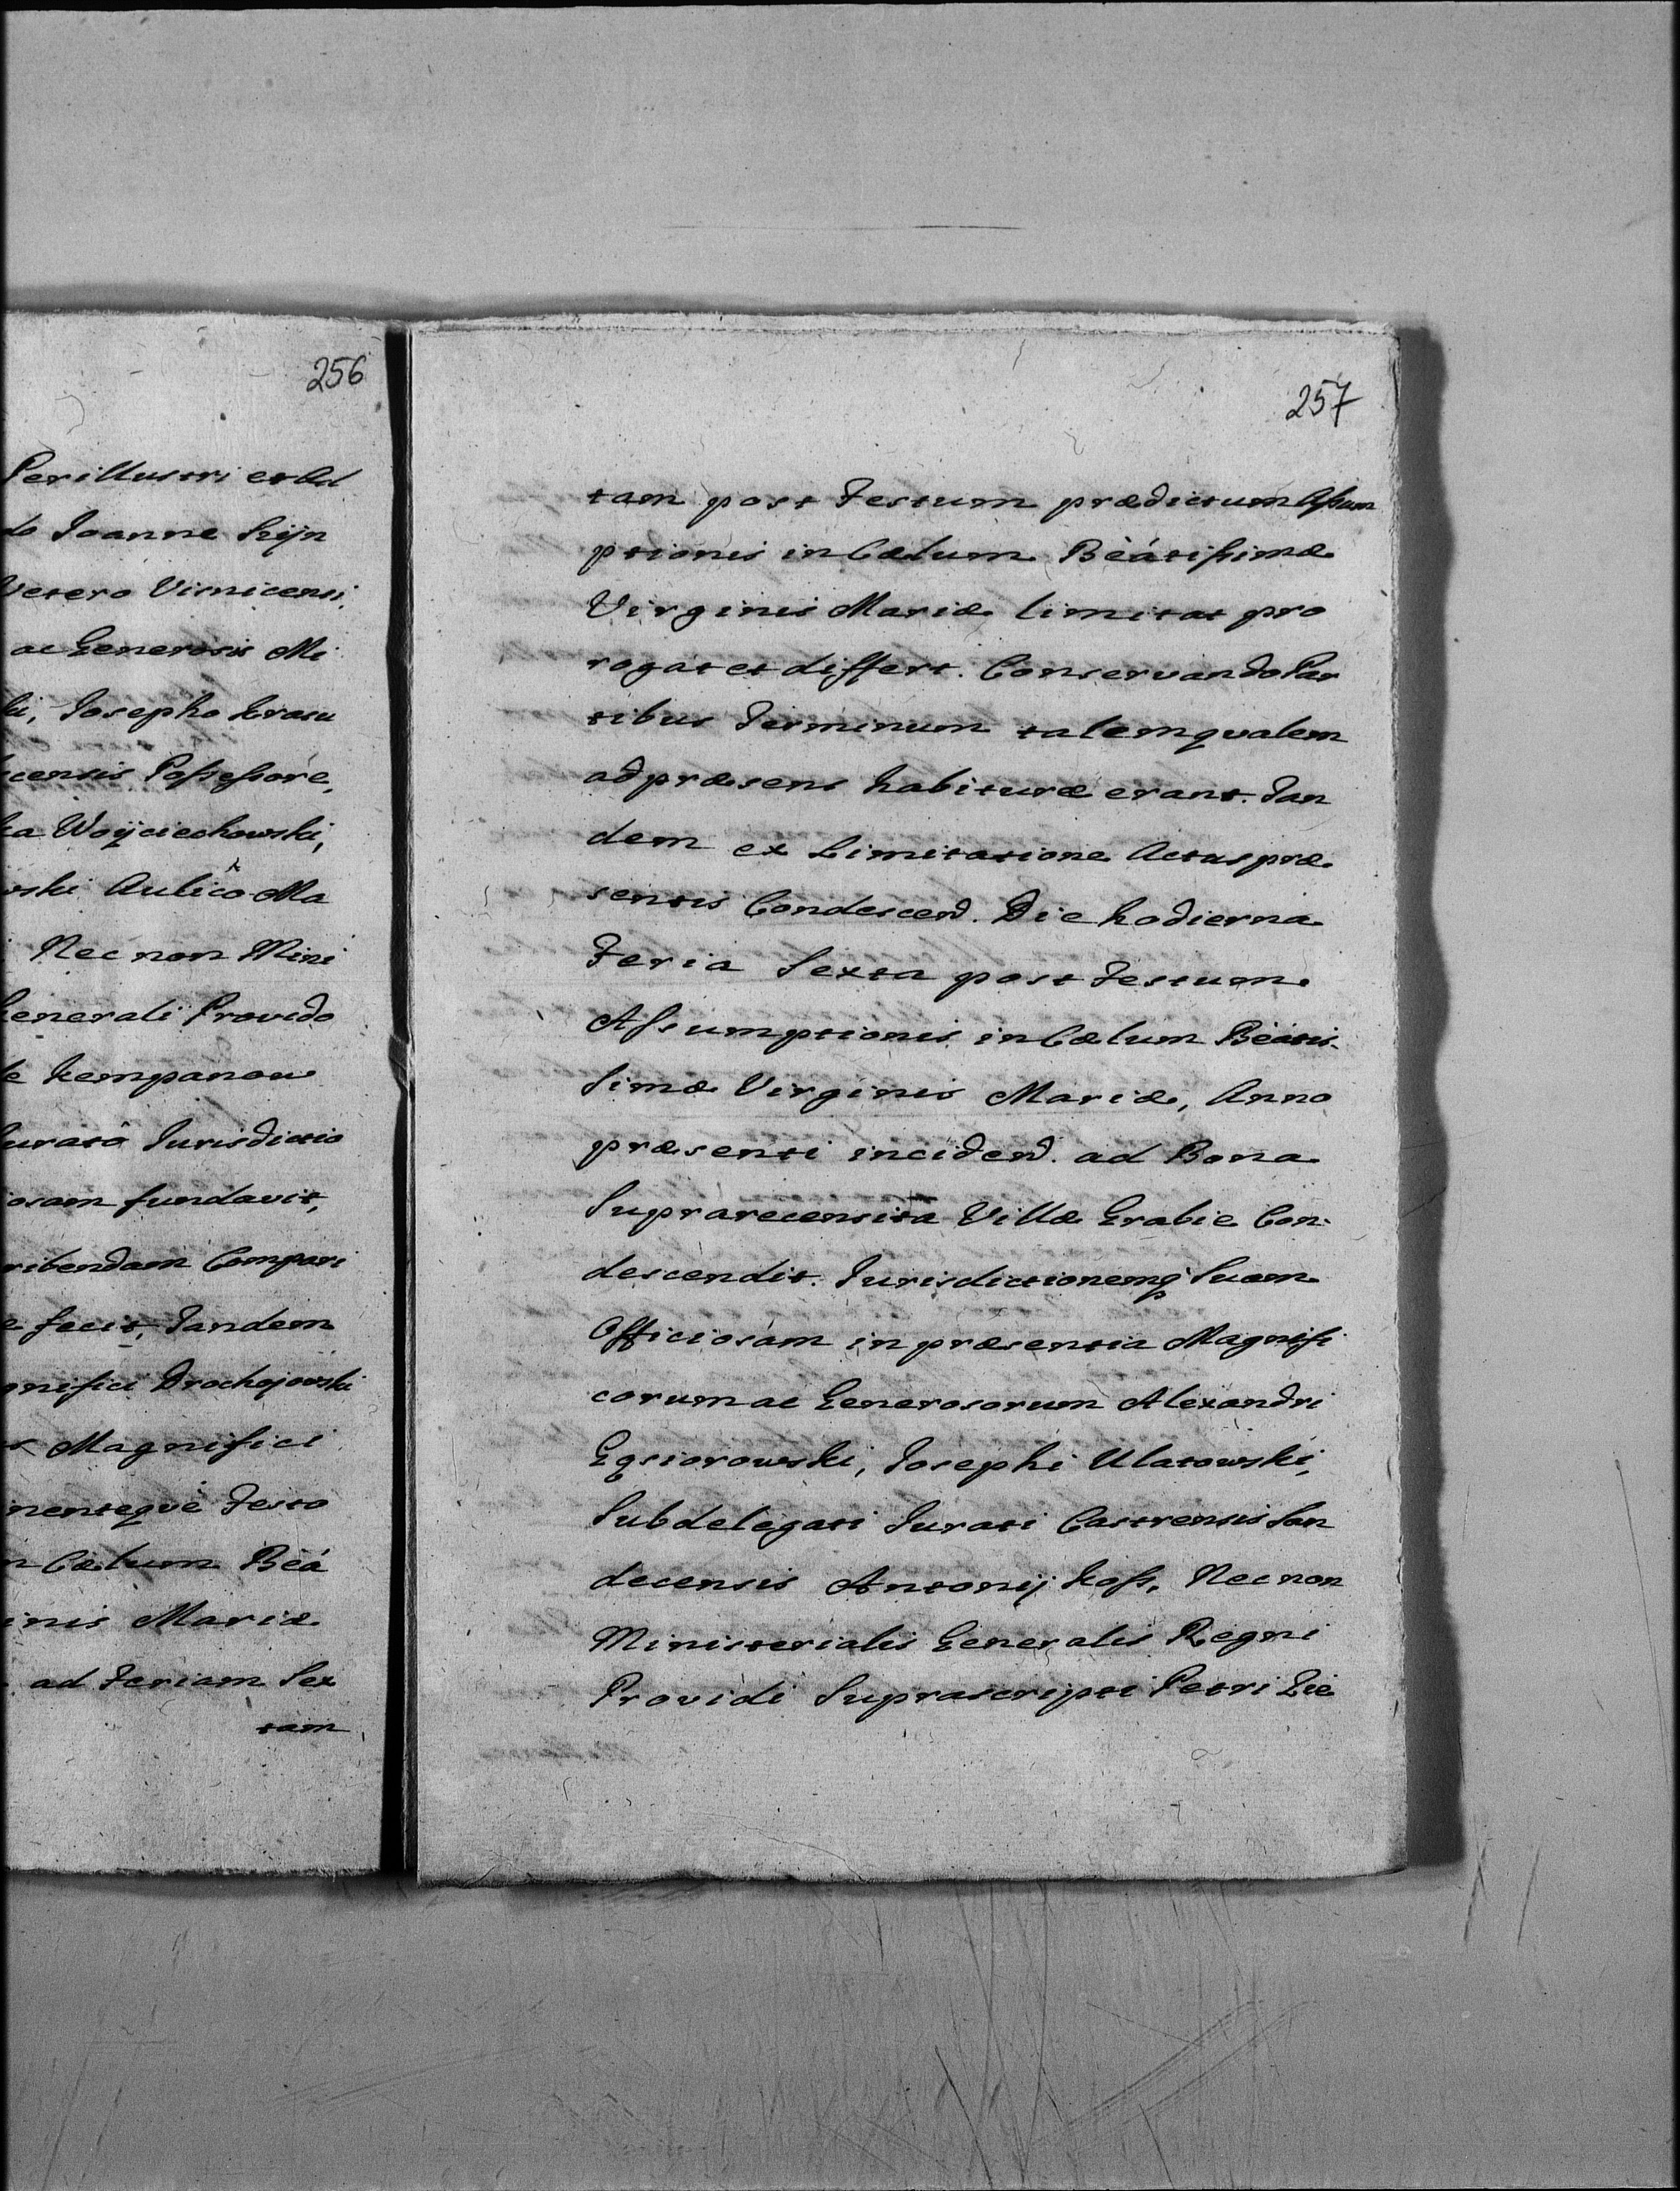 256
Perillustri et Ad
do Joanne Kijn
Vetero Visnicensi,
ac Generosis Mi
ki, Josepho Krasu
censis Possessore,
ka Woÿciechowski,
wski Aulico Ma
Nec non Mini
Generali Provido
de Kempanow
Juratô Jurisdictio
iosam fundavit,
ribendam Compari
e fecit, Tandem
gnifici Drochojowski
Magnifici
nenteqve Festo
n Cælum Beá
inis Mariæ
ad Feriam Sex
tam
257
tam post Festum prædictum Assum
ptionis in Cælum Beátissimæ
Virginis Mariæ limitat pro
rogat et differt. Conservando Par
tibus Terminum talem qvalem
ad præsens habituræ erant. Tan
dem ex Limitatione Actus præ
sentis Condescend. Die hodierna
Feria Sexta post Festum
Assumptionis in Cælum Beatis
simæ Virginis Mariæ, Anno
præsenti incidend. ad Bona
Suprarecensita Villæ Grabie Con
descendit. Jurisdictionemq Suam
Officiosam in præsentia Magnifi
corum ac Generosorum Alexandri
Gąsiorowski, Josephi Ulatowski,
Subdelegati Jurati Castrensis San
decensis Antonij Koss, Nec non
Ministerialis Generalis Regni
Providi Suprascripti Petri Zie